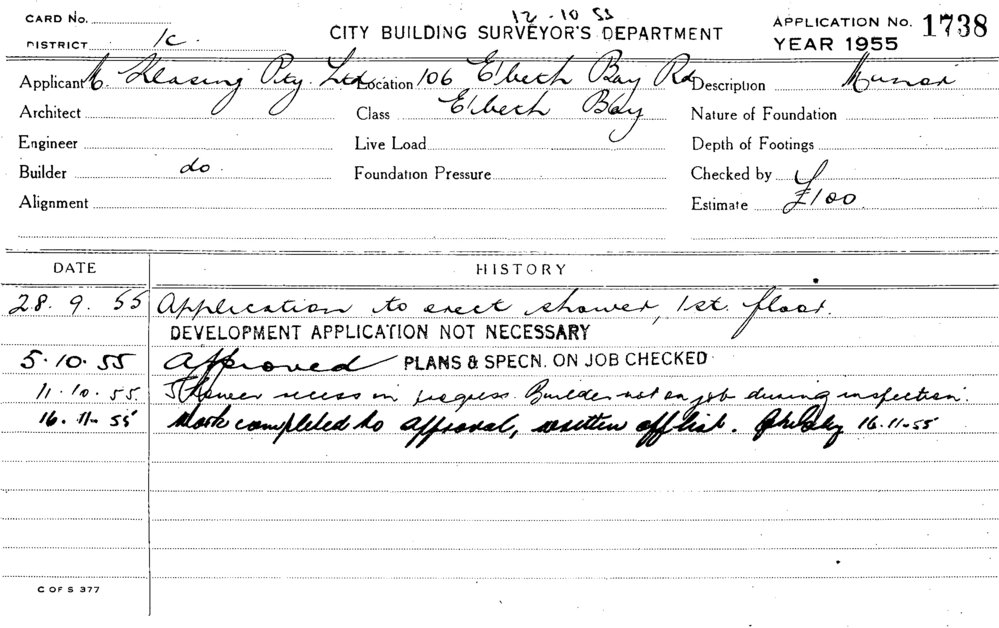 12.10.55
CARD No.
DISTRICT 1c.
CITY BUILDING SURVEYOR'S DEPARTMENT
APPLICATION No. 1738
YEAR 1955
Applicant Pty. Ltd. Location 106 Elbeth Bay Rd Description Minor
Architect Class Elbeth Bay Nature of Foundation
Engineer Live Load Depth of Footings
Builder do. Foundation Pressure Checked by
Alignment Estimate £100
DATE HISTORY
28.9.55 Application to erect shower, 1st. floor.
DEVELOPMENT APPLICATION NOT NECESSARY
5.10.55 Approved PLANS & SPECN. ON JOB CHECKED
11.10.55. Shower recess in progress. Builder not on job during inspection.
16.11.55 Work completed to approval, written off list. 16.11.55
C OF S 377